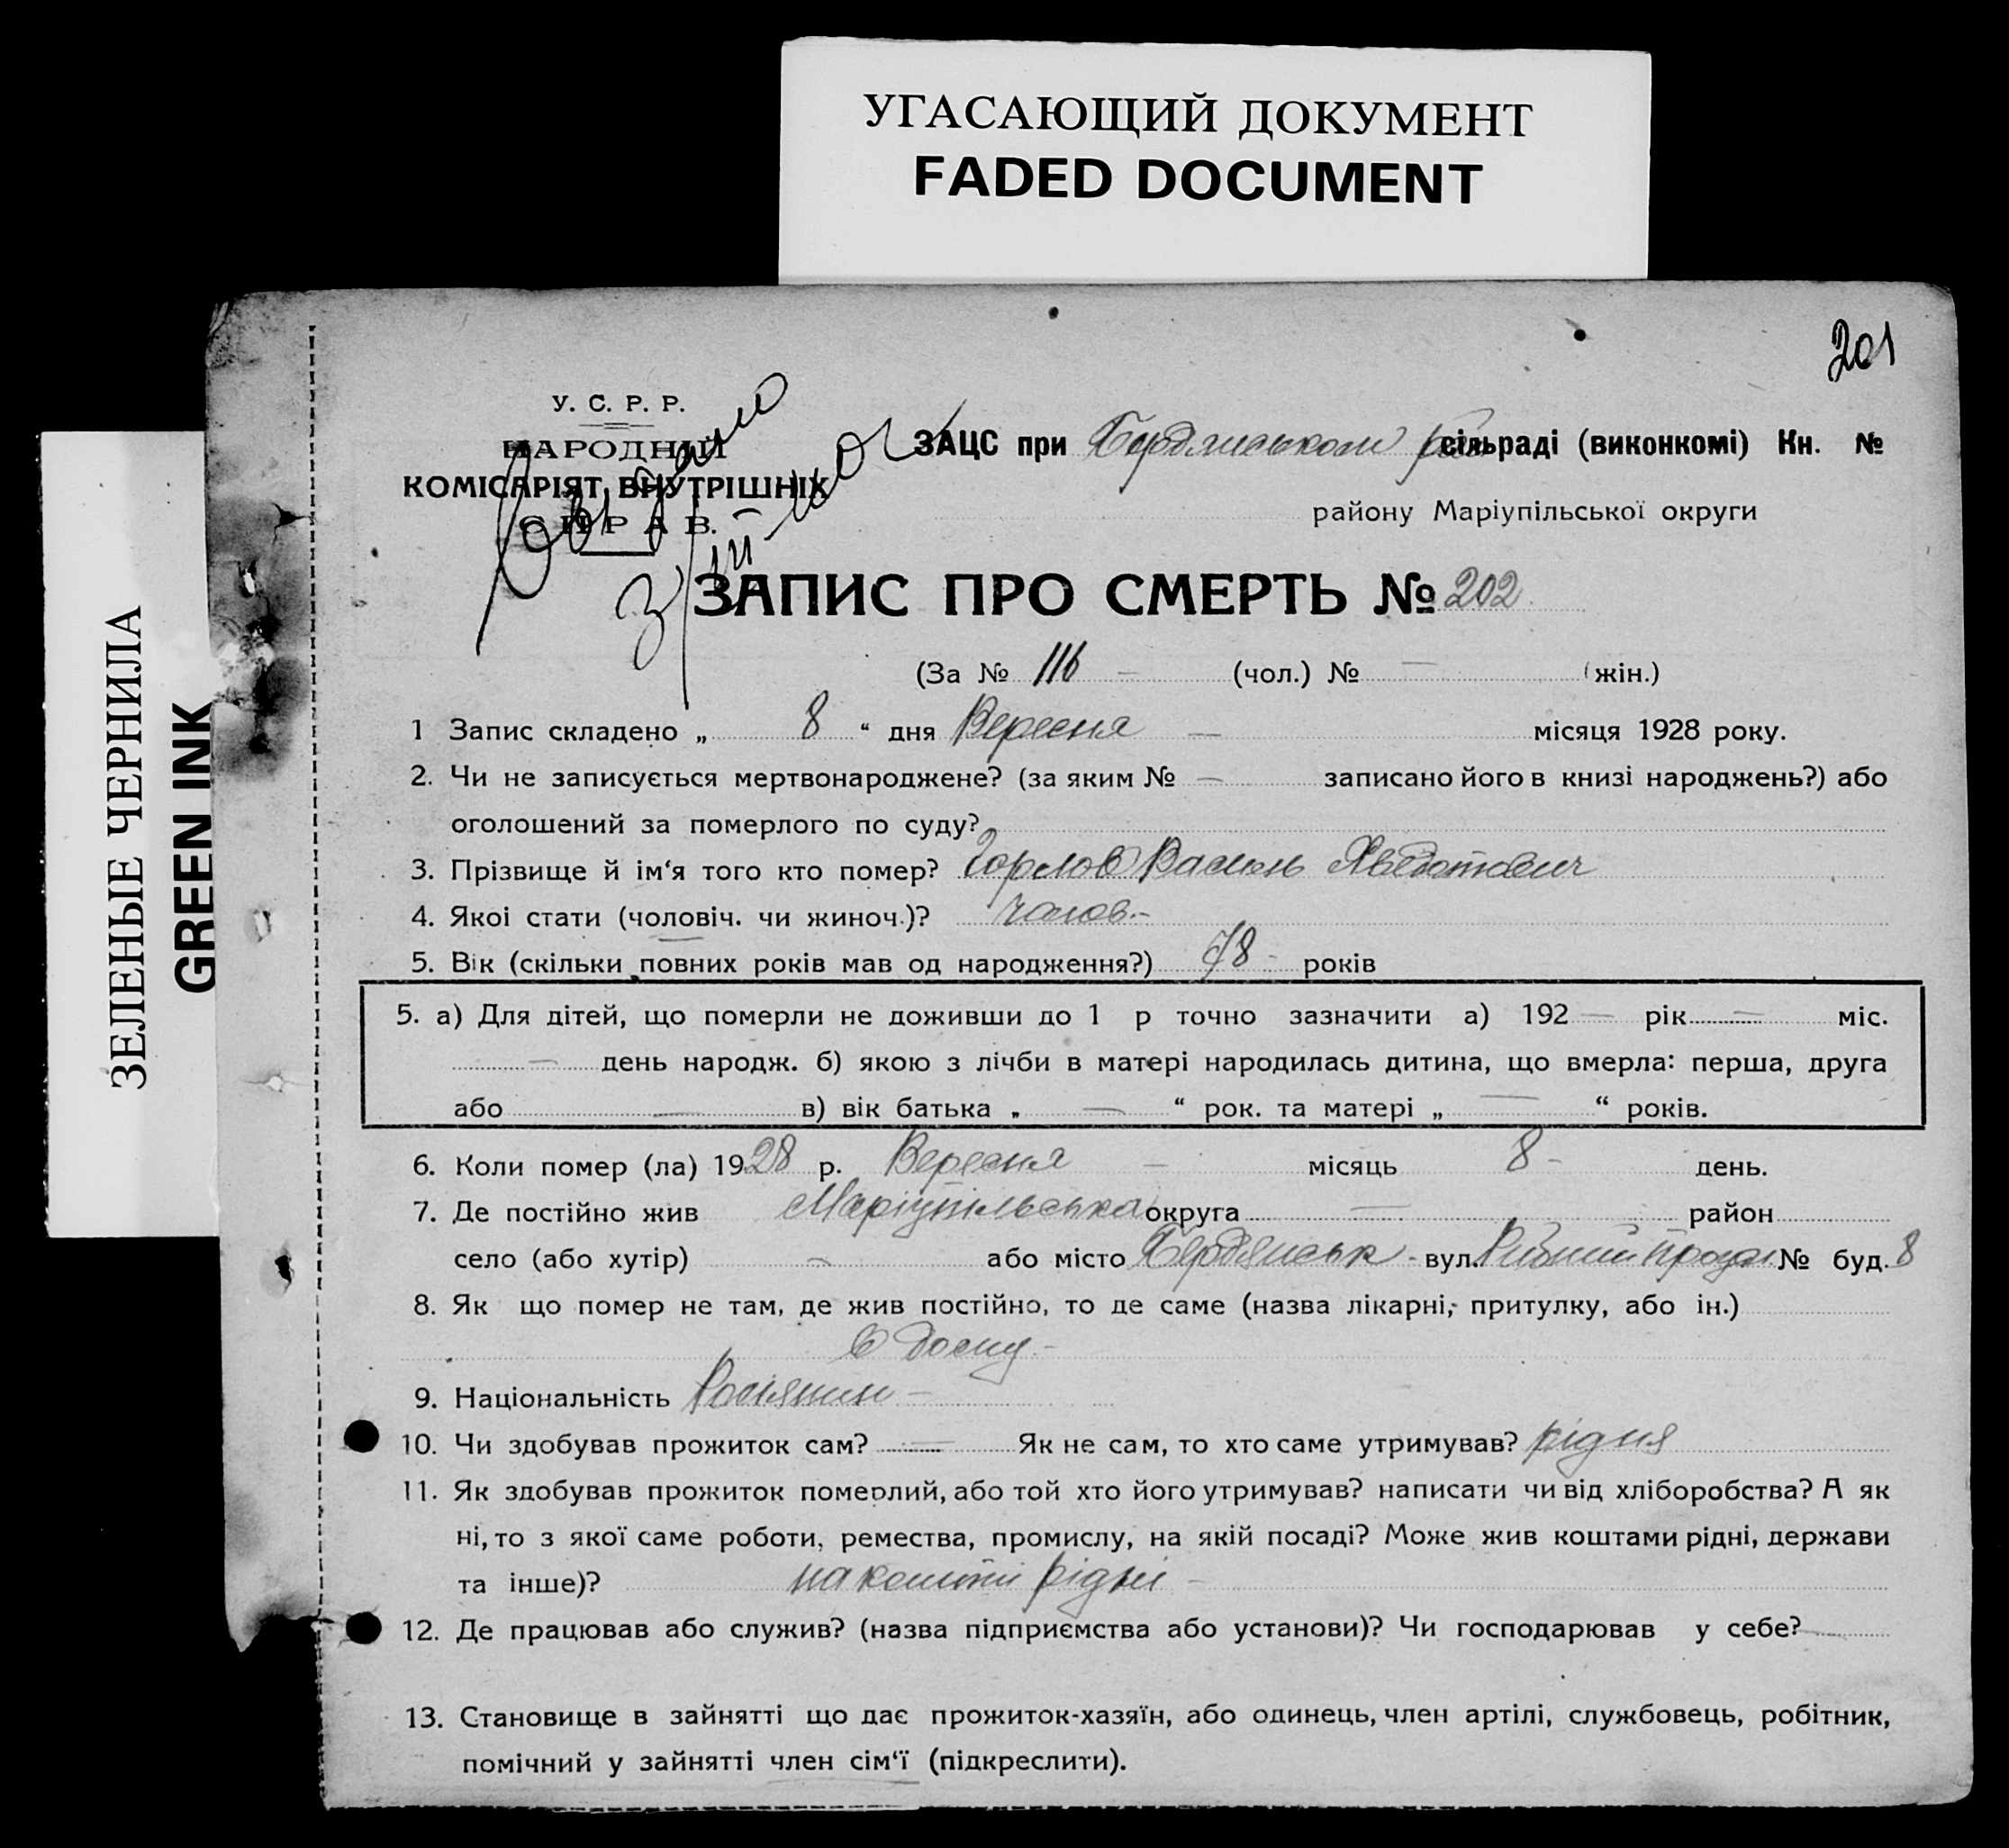 УГАСАЮЩИЙ ДОКУМЕНТ
FADED DOCUMENT
ЗЕЛЕНЫЕ ЧЕРНИЛА
GREEN INK
201
У. С. Р. Р.
НАРОДНИЙ
КОМІСАРІЯТ ВНУТРІШНІХ
СПРАВ.
ЗАЦС при Бердянськом сільраді (виконкомі) Кн. №
району Маріупільської округи
ЗАПИС ПРО СМЕРТЬ № 202
(За № 116 — (чол.) № — (жін.)
1 Запис складено „ 8 “ дня Вересня — місяця 1928 року.
2. Чи не записується мертвонароджене? (за яким № — записано його в книзі народжень?) або
оголошений за померлого по суду?
3. Прізвище й ім‘я того кто помер? Горлов Василь Хведотович
4. Якоі стати (чоловіч. чи жиноч.)? чолов.-
5. Вік (скільки повних років мав од народження?) 78 - років
5. а) Для дітей, що померли не доживши до 1 р точно зазначити а) 192 — рік — міс.
— день народж. б) якою з лічби в матері народилась дитина, що вмерла: перша, друга
або — в) вік батька „ — “ рок. та матері „ — “ років.
6. Коли помер (ла) 1928 р. Вересня — місяць 8 - день.
7. Де постійно жив Маріупільська округа — район
село (або хутір) — або місто Бердянськ - вул. № буд. 8
8. Як що помер не там, де жив постійно, то де саме (назва лікарні, притулку, або ін.)
в дому -
9. Національність Росіянин —
10. Чи здобував прожиток сам? — Як не сам, то хто саме утримував? рідня
11. Як здобував прожиток померлий, або той хто його утримував? написати чи від хліборобства? А як
ні, то з якої саме роботи, ремества, промислу, на якій посаді? Може жив коштами рідні, держави
та інше)? на кошти рідні -
12. Де працював або служив? (назва підприємства або установи)? Чи господарював у себе?
13. Становище в зайнятті що дає прожиток-хазяїн, або одинець, член артілі, службовець, робітник,
помічний у зайнятті член сім‘ї (підкреслити).